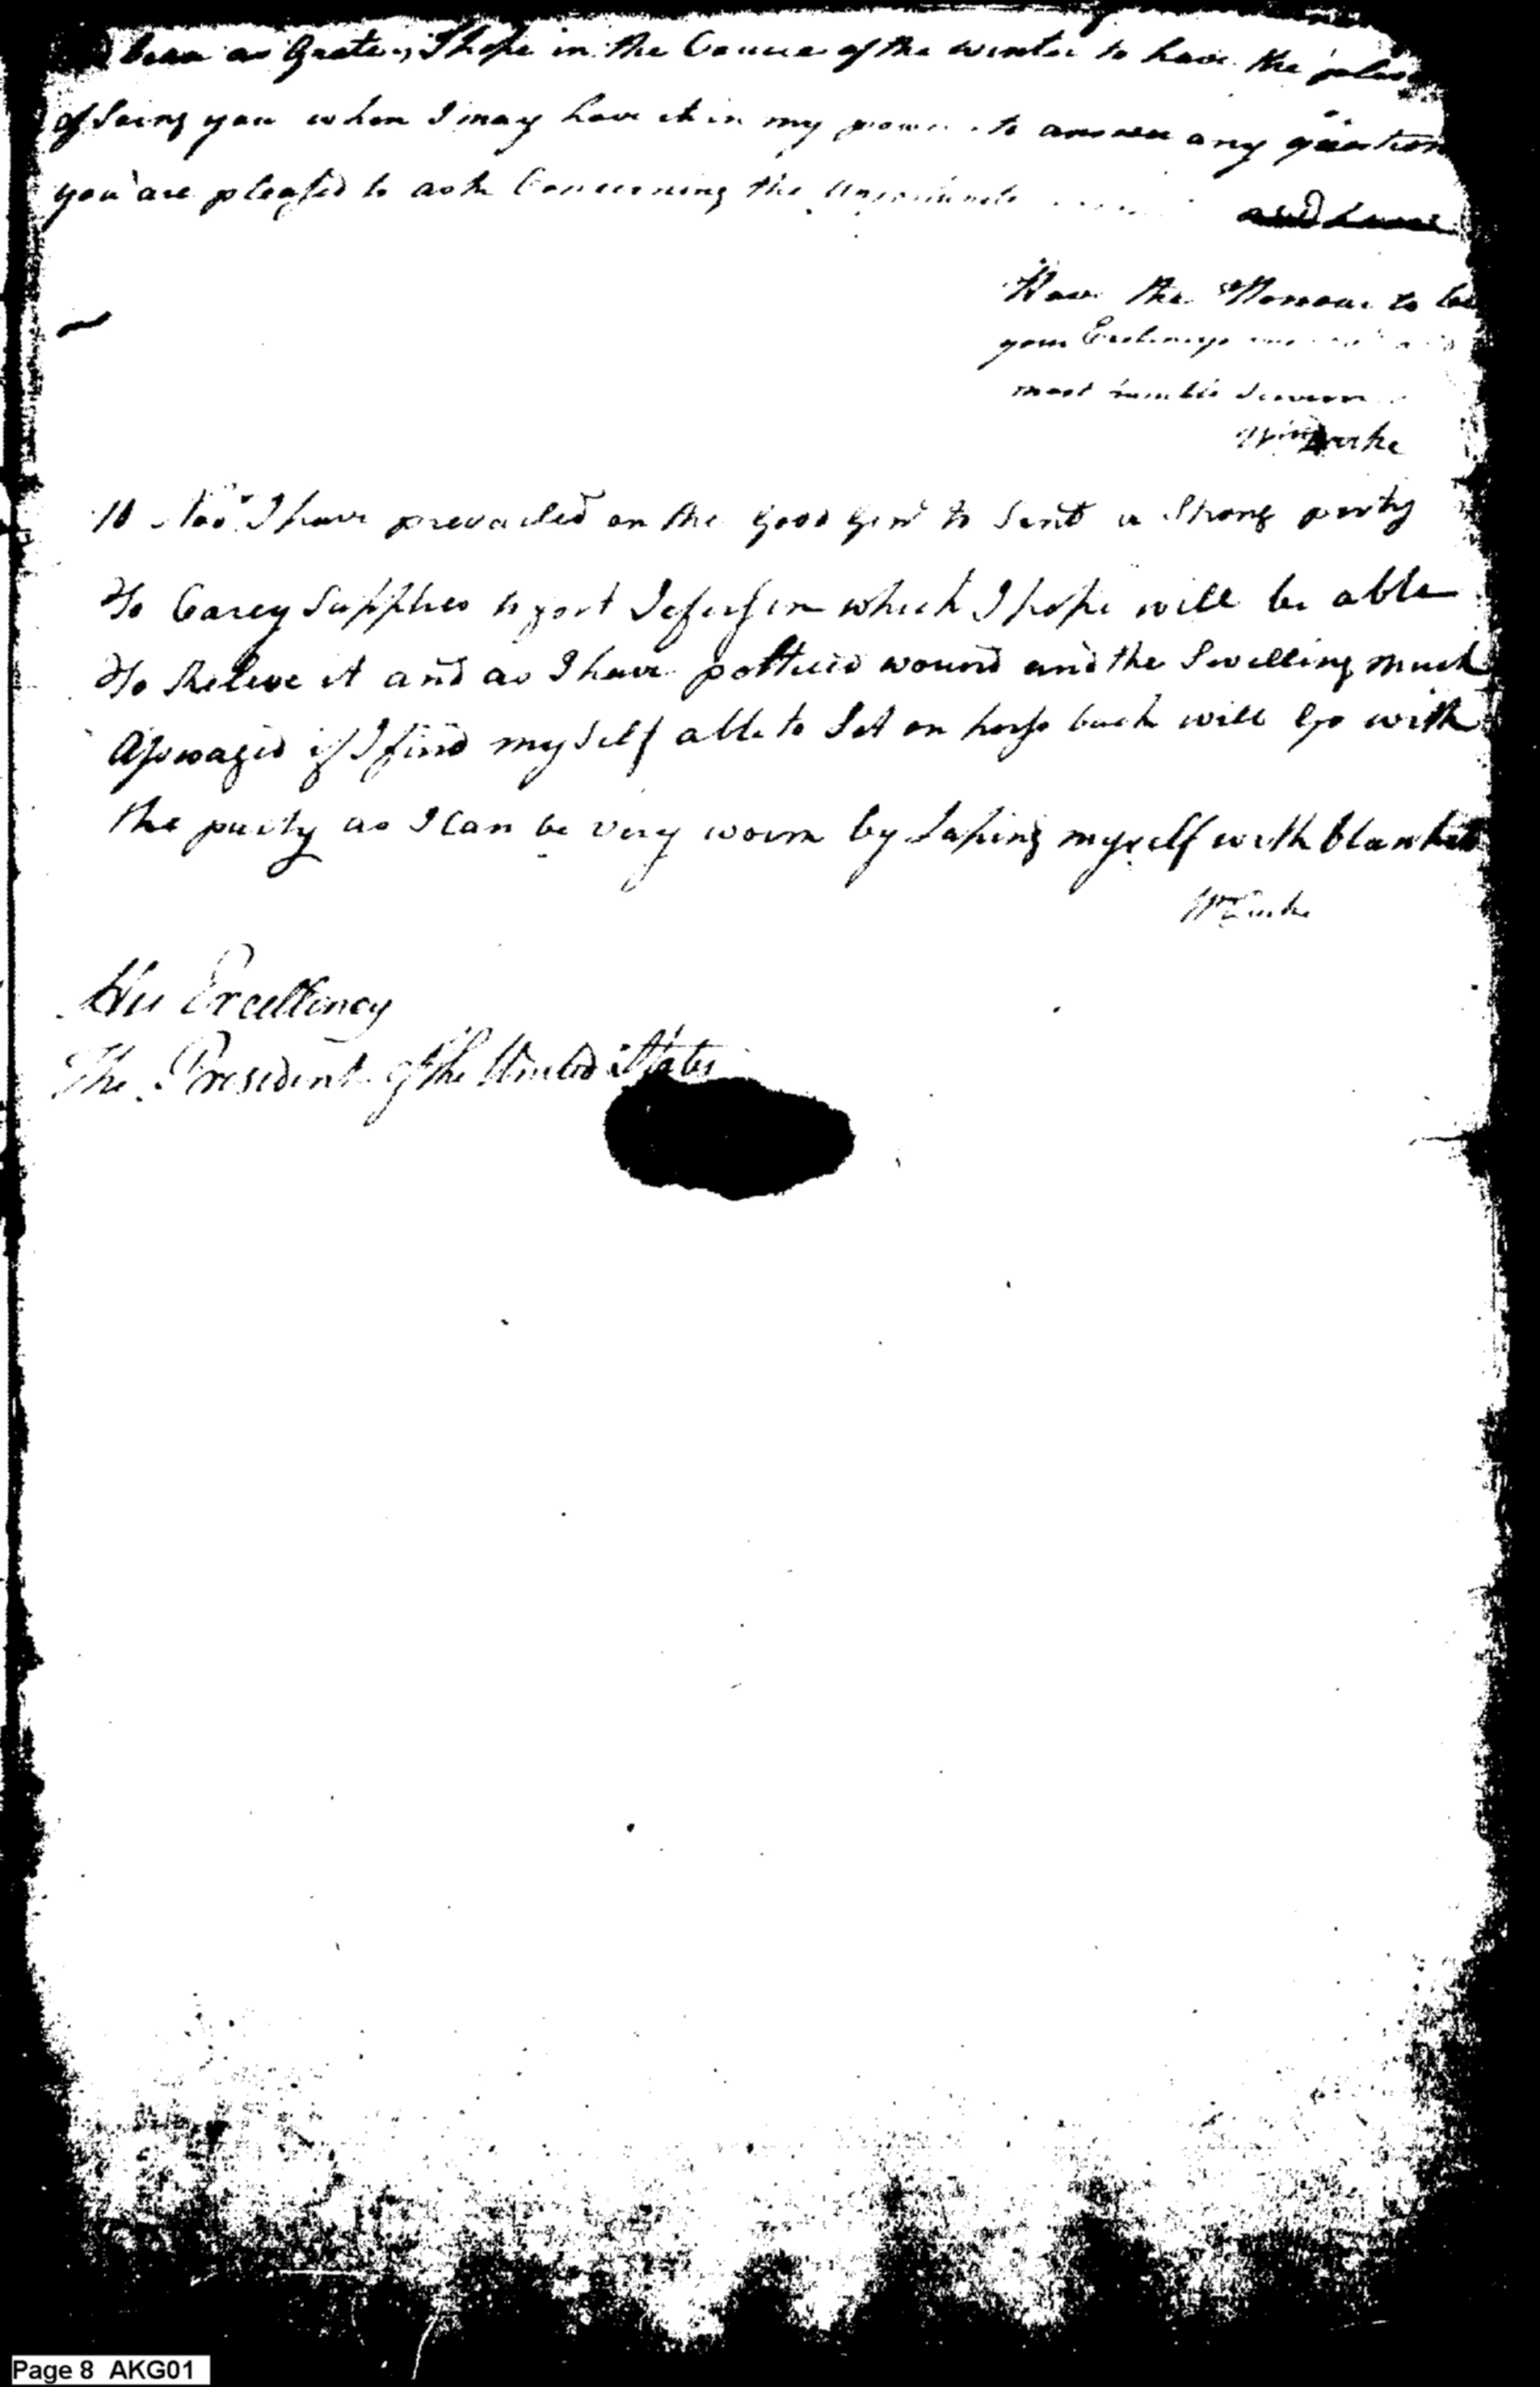 been as Grate, I hope in the Course of the winter to have the
of Seing you when I may have it in my power to answer any question
you are pleased to ask Concerning the Unfortunate
and have
Have the Honour to be
your Exclencys
most humble Servan
Wm Darke
10 Nov.r I have prevailed on the good Genl to Sent a Strong party
To Carey Supplies to fort Jefferson which I hope will be able
To Releive it and as I have polticed wound and the Swelling much
Asswaged if I find myself able to Set on horse back will Go with
the party as I Can be very worm by Laping myself with blankets
Wm Darke
His Excellency
The President of the United States
Page 8 AKG01